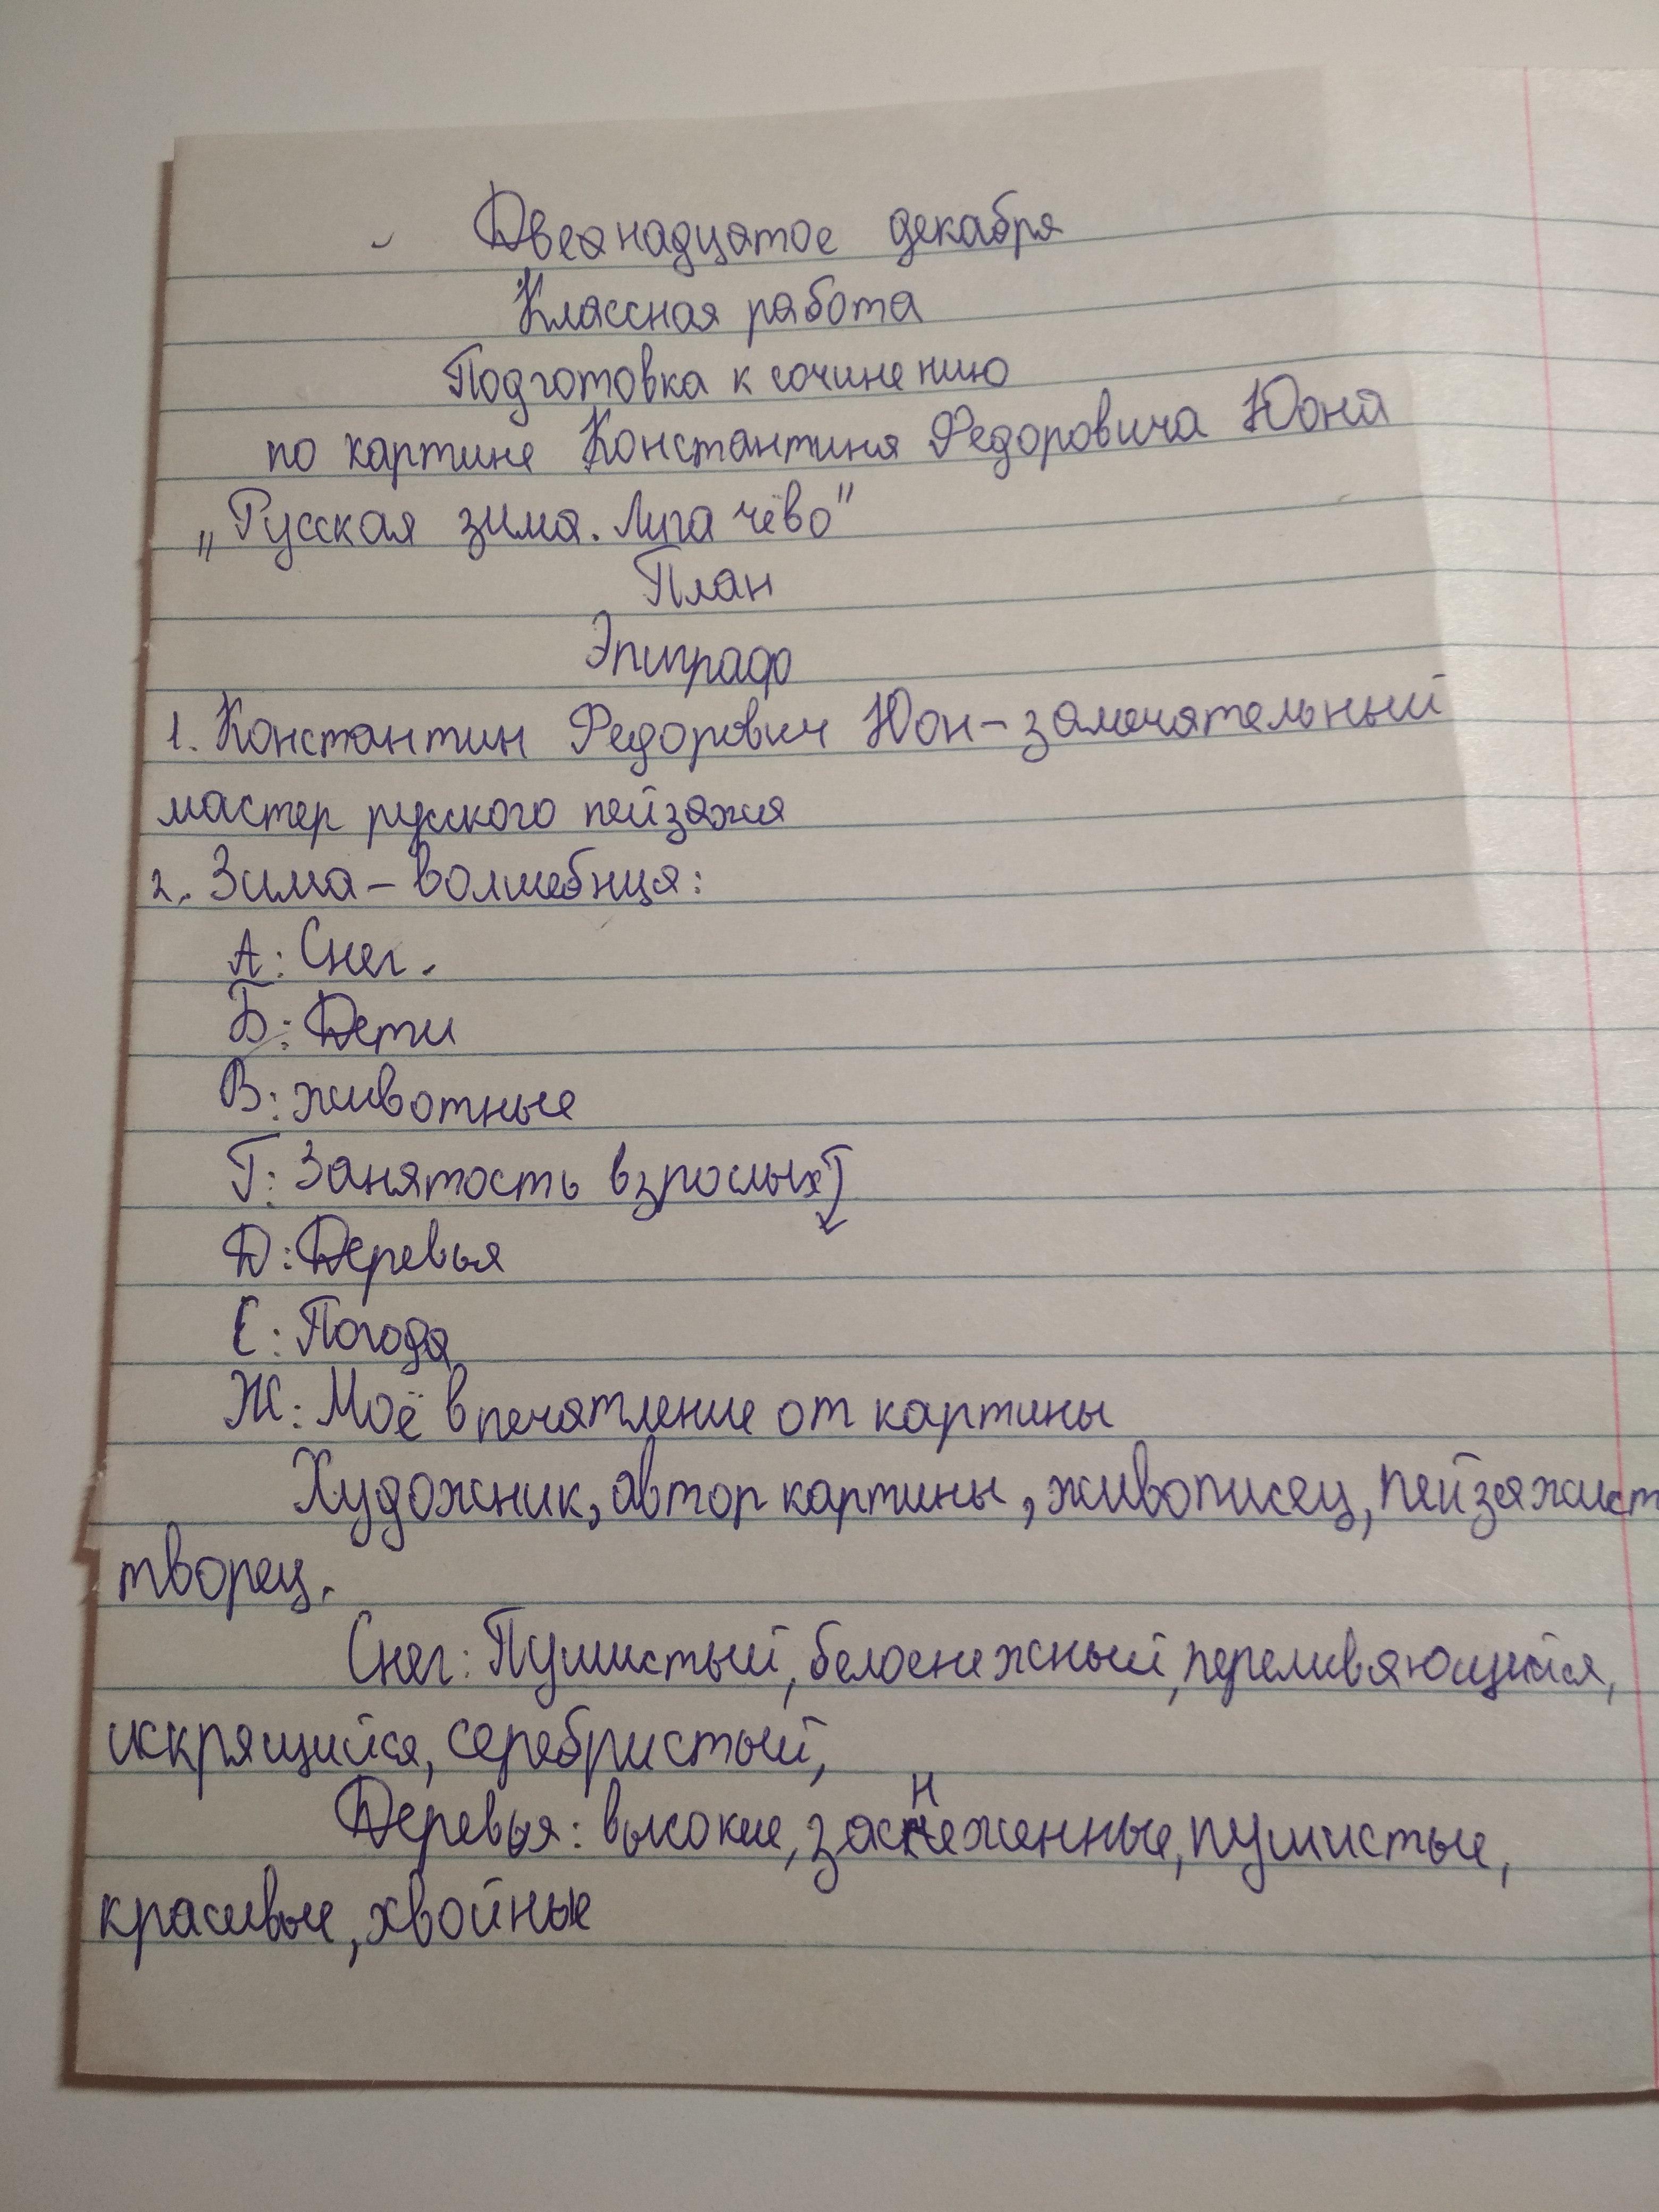 Двенадцатое декабря
Классная работа
Подготовка к сочинению
по картине Константина Федоровича Юона
„Русская зима. Лигачёво"
План
Эпиграф
1. Константин Федорович Юон – замечательный
мастер русского пейзажа
2. Зима – волшебница:
А: Снег.
Б: Дети
В: животные
Г: Занятость взрослых
Д: Деревья
Е: Погода
Ж: Моё впечатление от картины
Художник, автор картины, живописец, пейзажист
творец.
Снег: Пушистый, белоснежный, переливающийся,
искрящийся, серебристый,
Деревья: высокие, заснеженные, пушистые,
красивые, хвойные